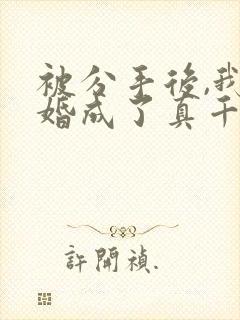 被分手後,我
婚成了真千
許開禎.